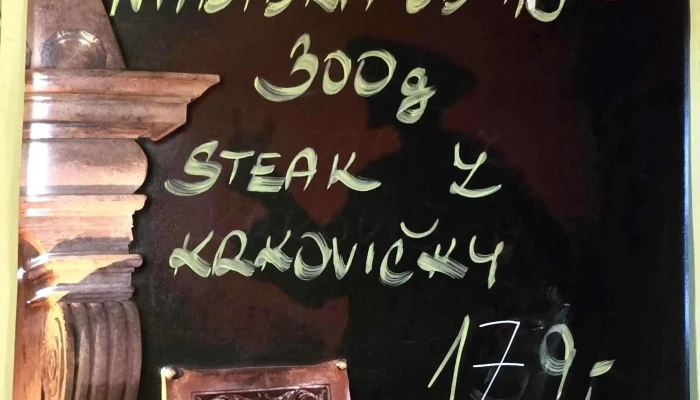 300g
STEAK Z
KRKOVIČKY
179,-